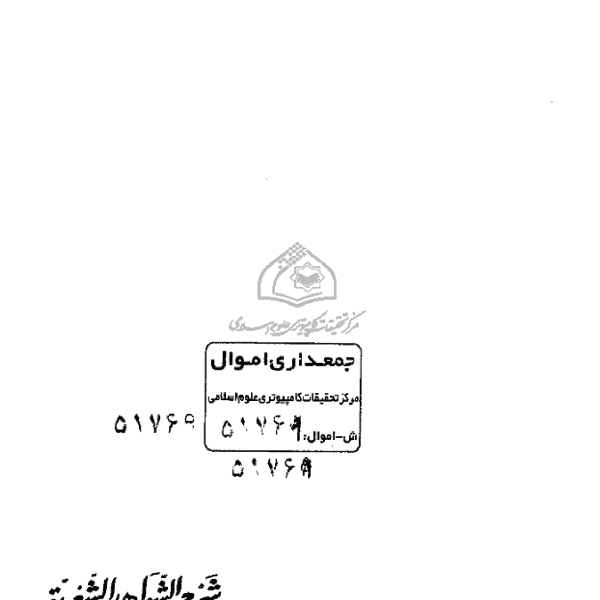 مرکز تحقیقات کامپیوتری علوم اسلامی
جمعداری اموال
مرکز تحقیقات کامپیوتری علوم اسلامی
ش-اموال:
۵۱۷۶۹
شرح الشواهد الشعرية